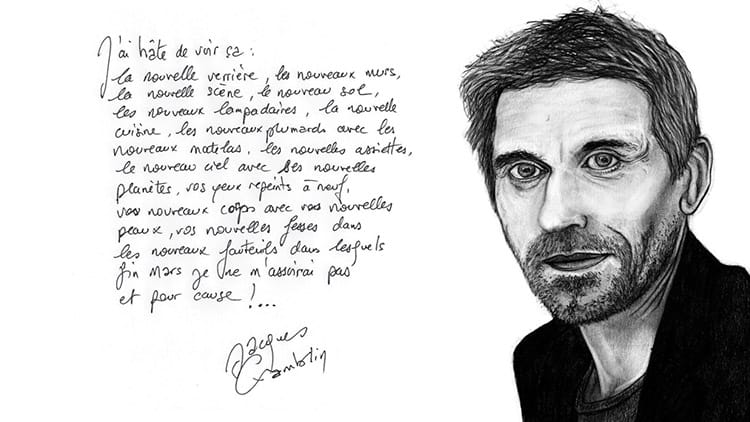 J'ai hâte de voir ça :
la nouvelle verrière, les nouveaux murs,
la nouvelle scène, le nouveau sol,
les nouveaux lampadaires, la nouvelle
cuisine, les nouveaux plumards avec les
nouveaux matelas, les nouvelles assiettes,
le nouveau ciel avec ses nouvelles
planètes, vos yeux repeints à neuf,
vos nouveaux corps avec vos nouvelles
peaux, vos nouvelles fesses dans
les nouveaux fauteuils dans lesquels
fin Mars je ne m'assoirai pas
et pour cause !...
Jacques
Gamblin